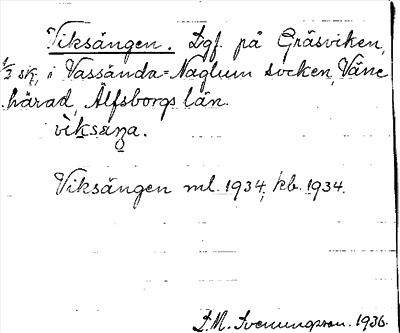 Viksängen. Lgf. på Gräsviken,
1/3 skj, i Vassända-Naglum socken, Väne
härad, Älfsborgs län.
viksäŋa.
Viksängen ml. 1934, kb. 1934.
D.M. Svenungsson. 1936.